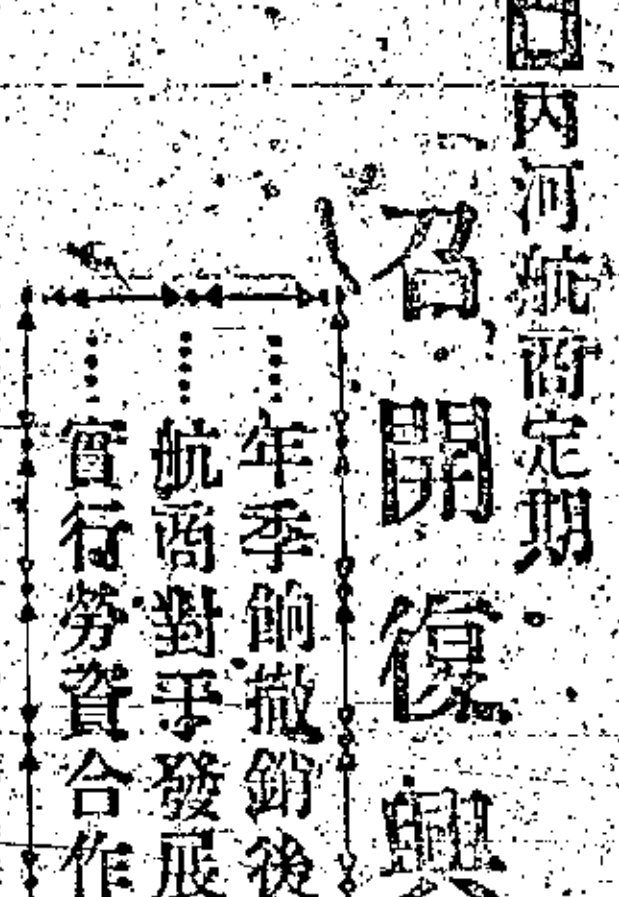 内河航商定期
召開復興
年季餉撤銷後
航商對于發展
實行勞資合作